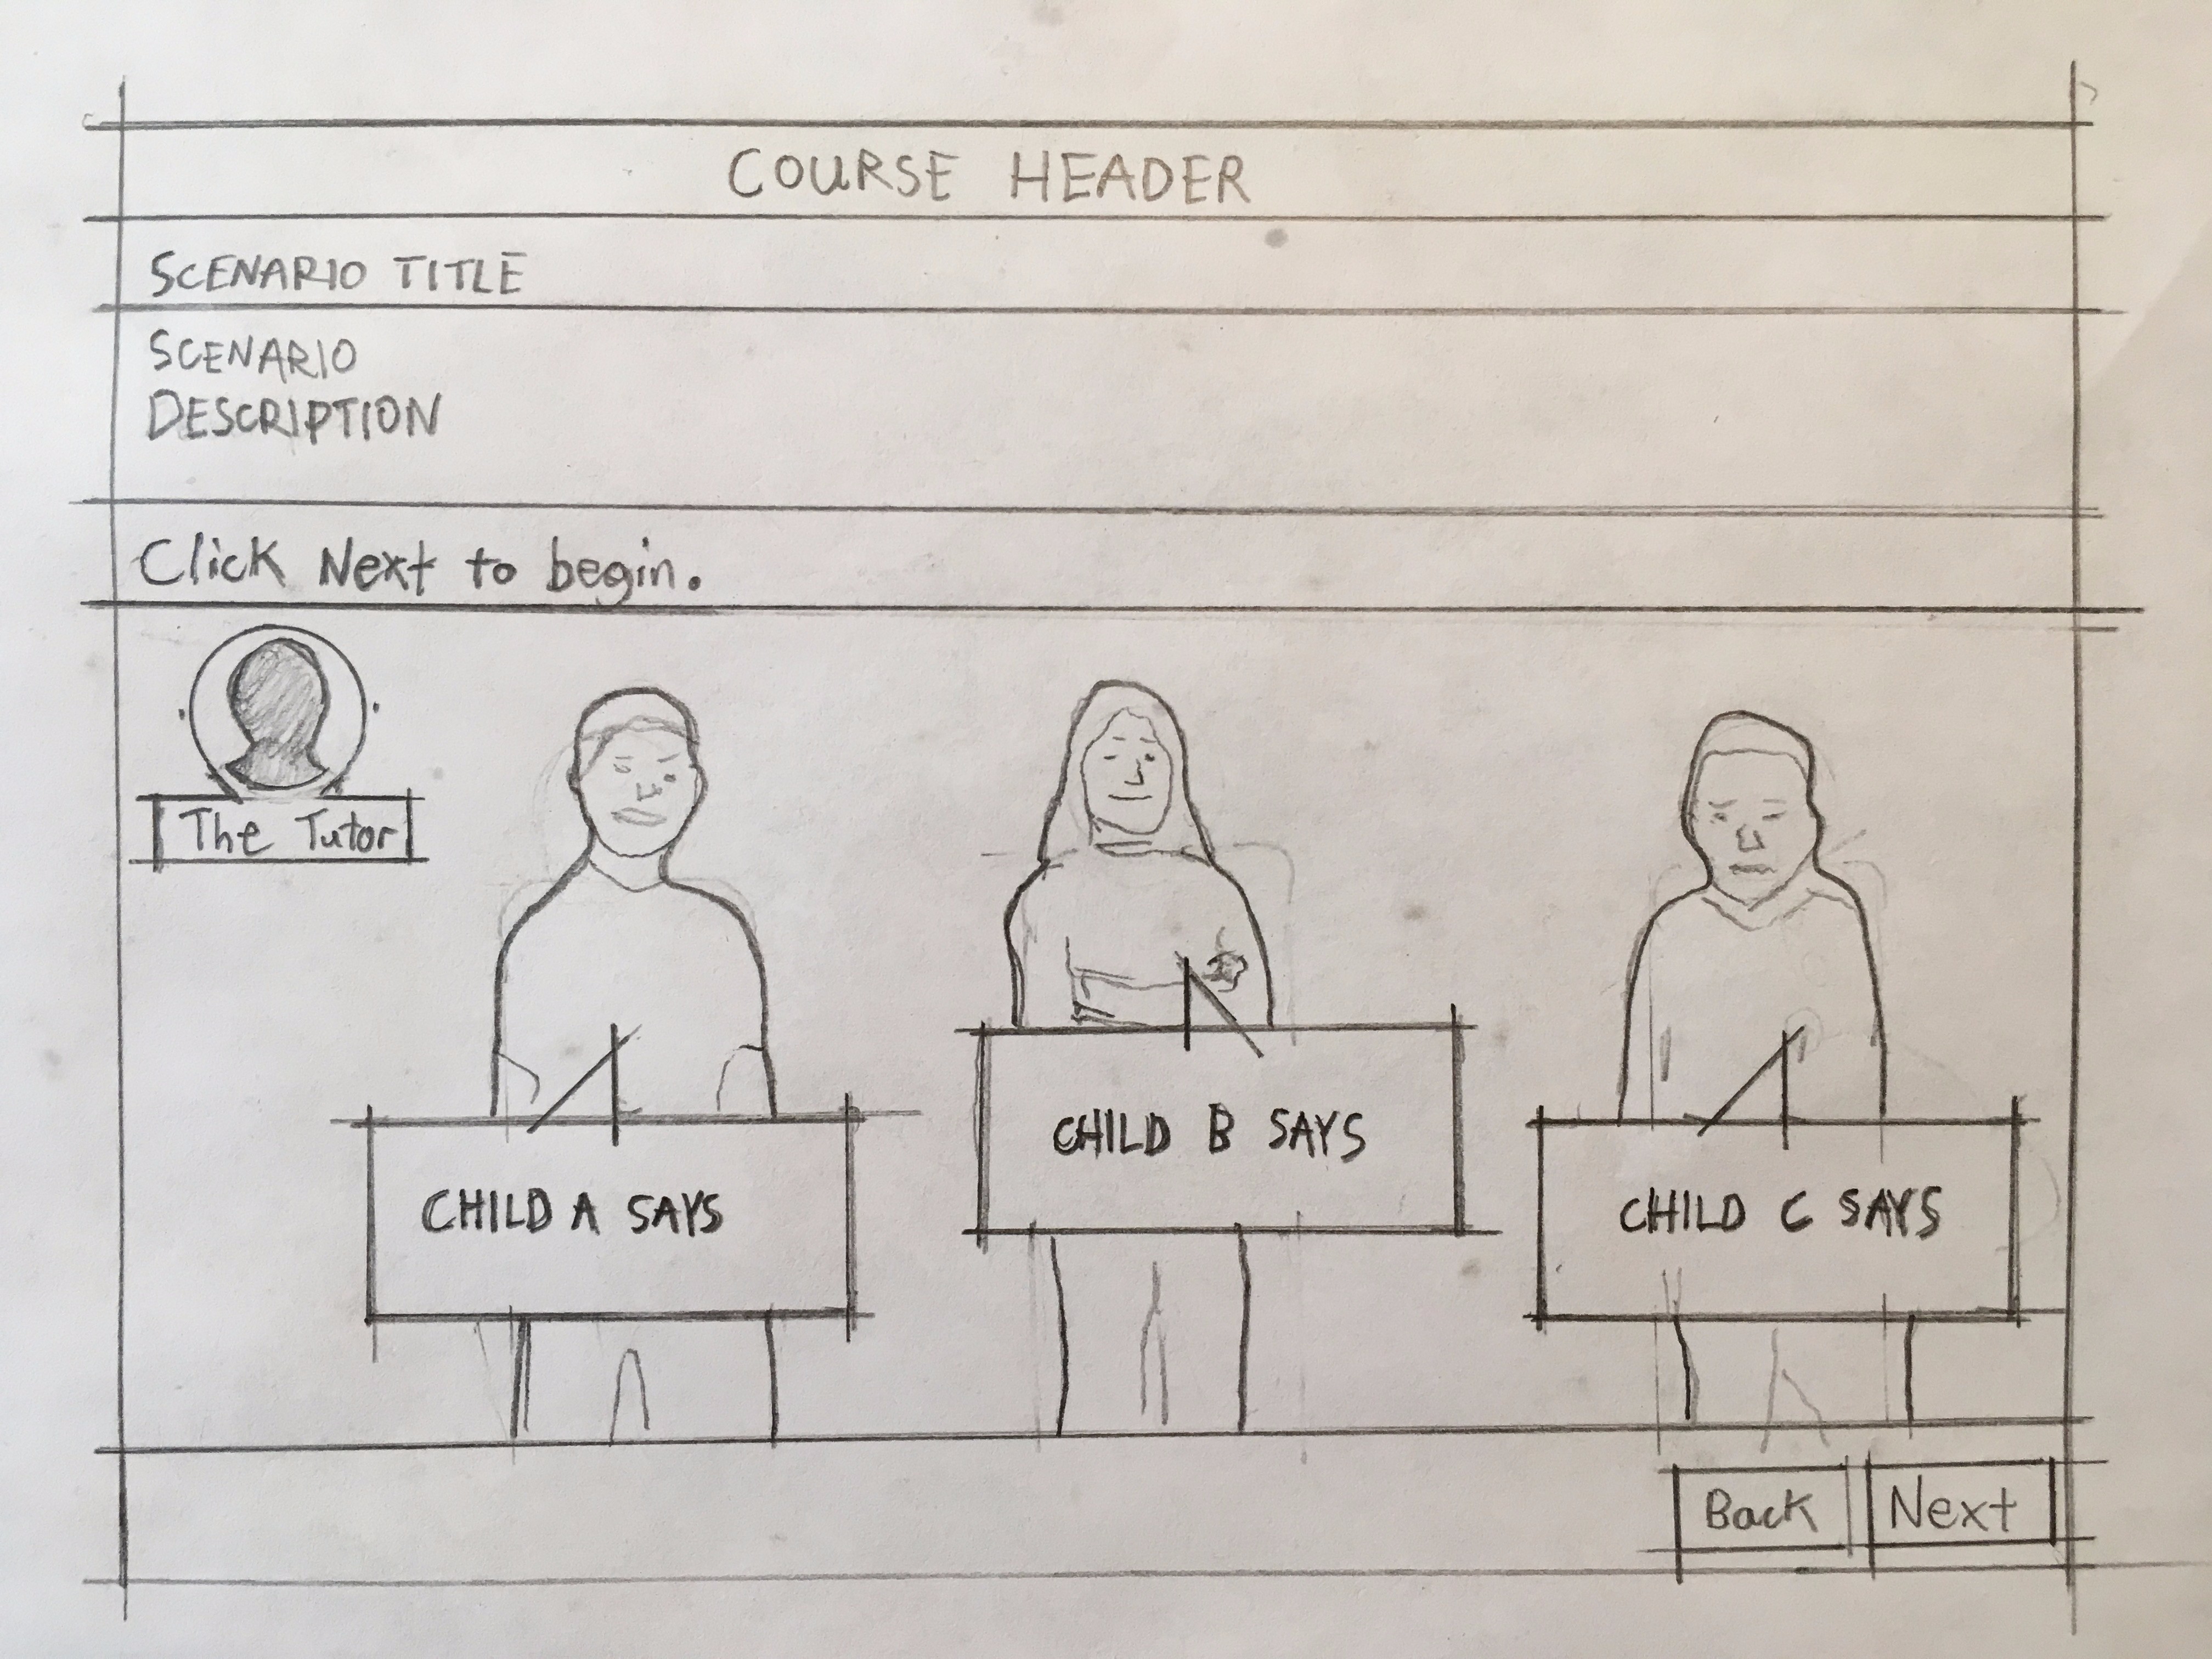 COURSE HEADER
SCENARIO TITLE
SCENARIO
DESCRIPTION
Click Next to begin.
The Tutor
CHILD A SAYS
CHILD B SAYS
CHILD C SAYS
Back
Next